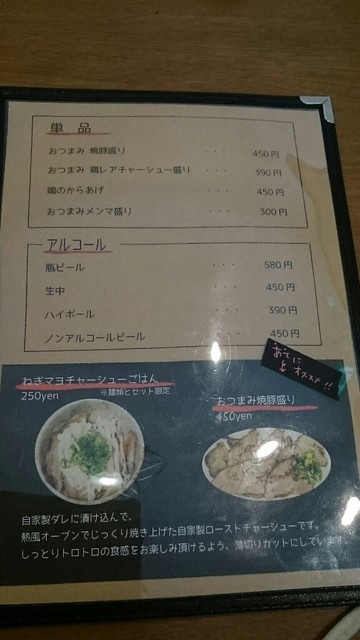 単 品
おつまみ 焼豚盛り ・・・ 450円
おつまみ 鶏レアチャーシュー盛り ・・・ 390円
鶏のからあげ ・・・ 450円
おつまみメンマ盛り ・・・ 300円
アルコール
瓶ビール ・・・ 580円
生中 ・・・ 450円
ハイボール ・・・ 390円
ノンアルコールビール ・・・ 450円
あてに
も オススメ!!
ねぎマヨチャーシューごはん
250yen ※麺類とセット限定
おつまみ焼豚盛り
450yen
自家製ダレに漬け込んで、
熱風オーブンでじっくり焼き上げた自家製ローストチャーシューです。
しっとりトロトロの食感をお楽しみ頂けるよう、薄切りカットにしています。